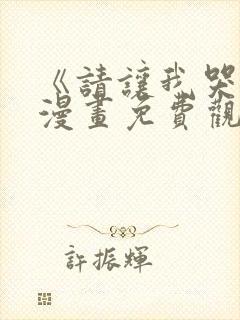 《請讓我哭
漫畫免費觀
許振輝